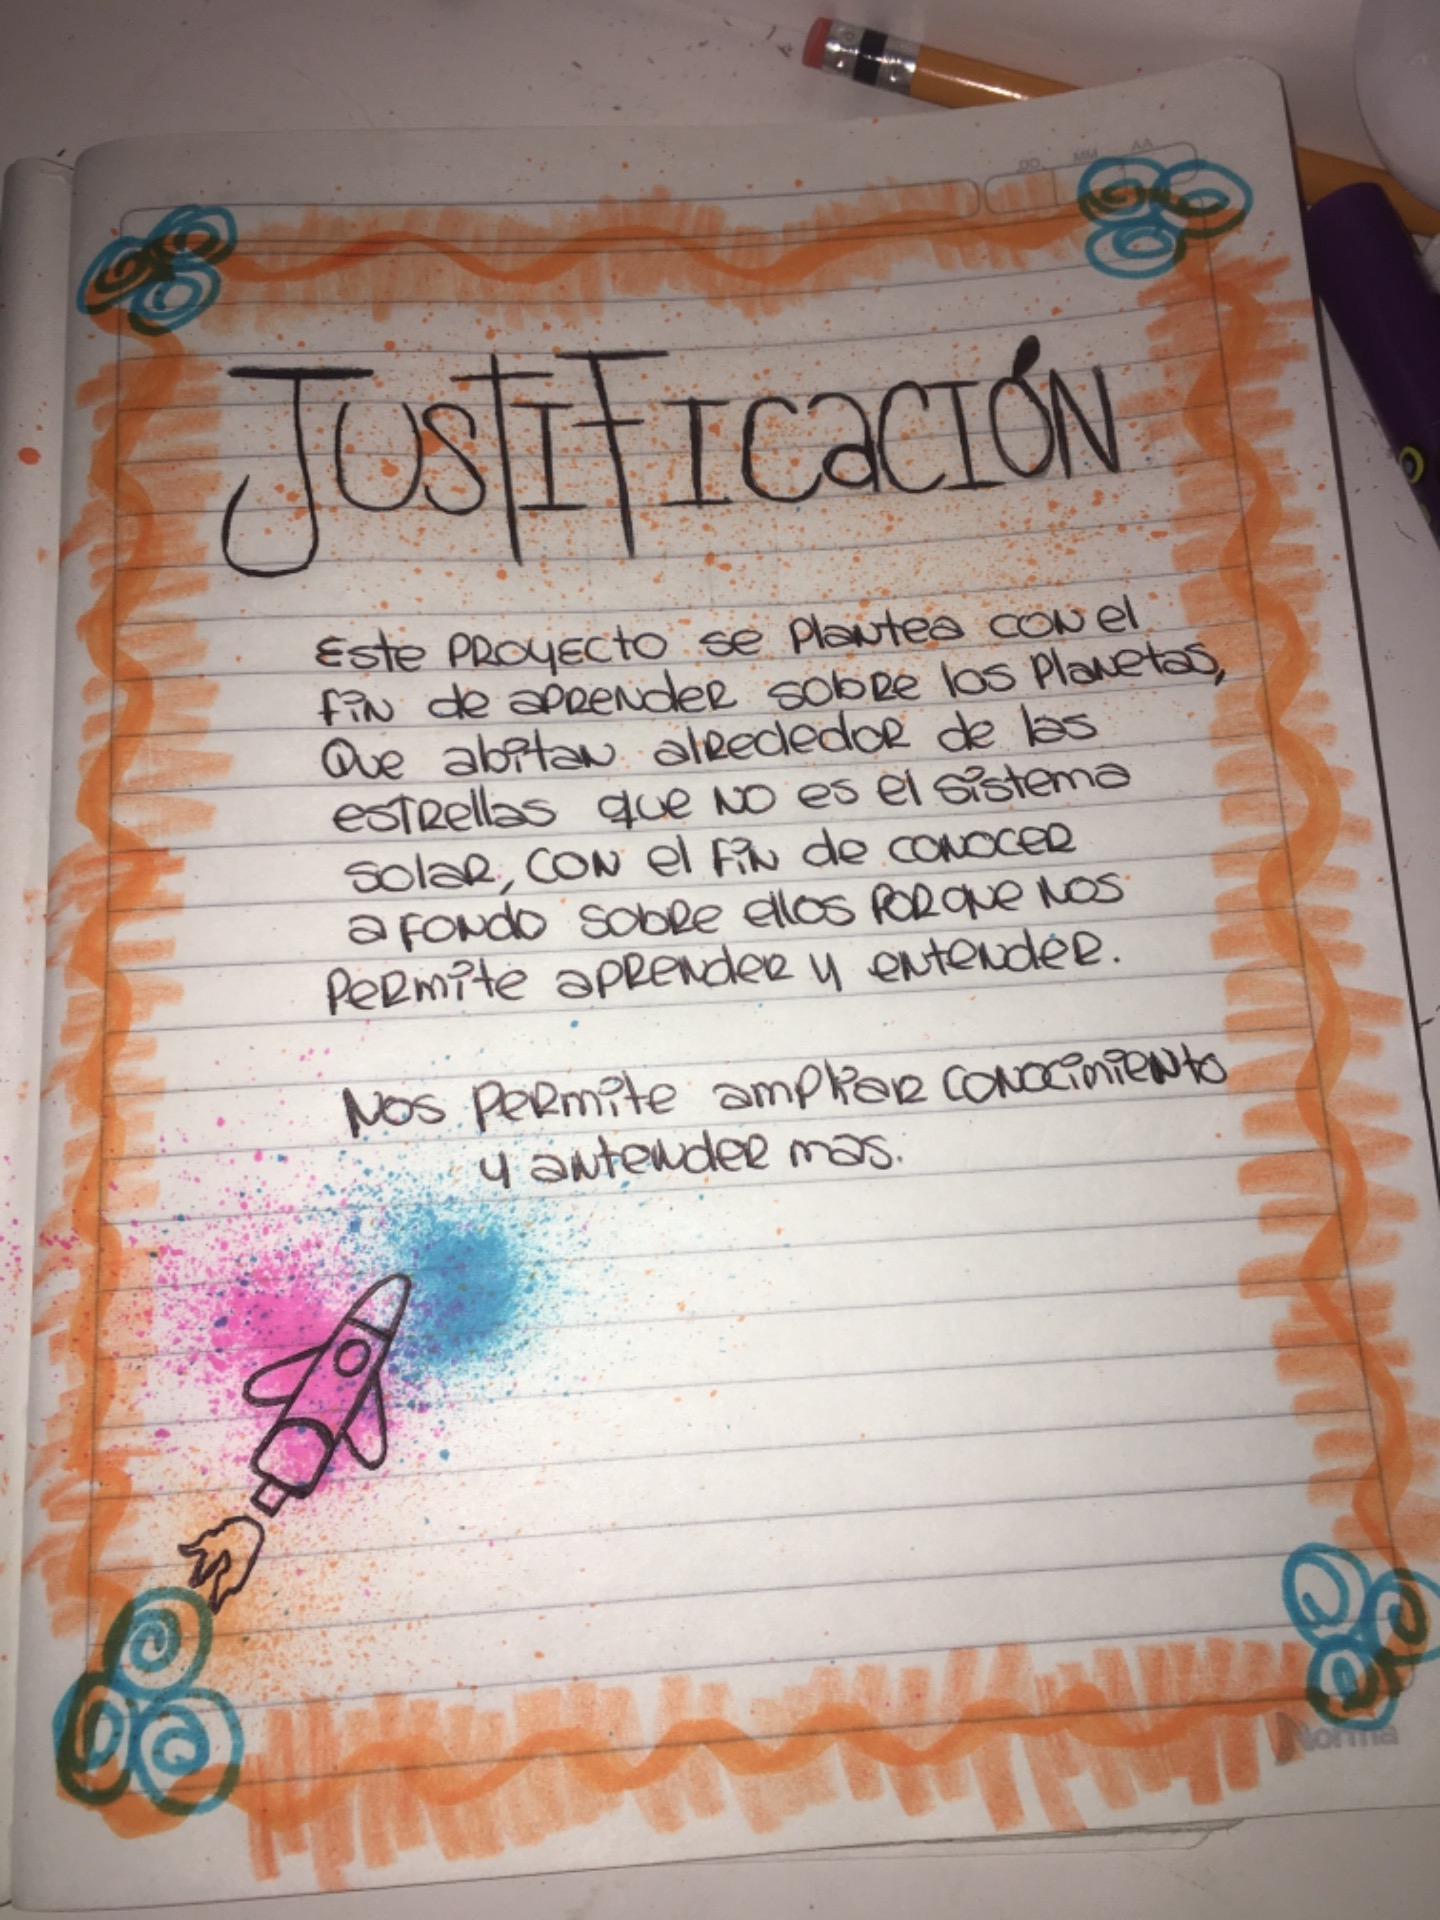 DD MM AA
JUSTIFICACIÓN
Este PROYECTO se Plantea con el
fin de aprender sobre los Planetas,
Que abitan alrededor de las
estrellas que no es el sistema
solar, con el fin de conocer
a fondo sobre ellos porque nos
Permite aprender y entender.
Nos Permite ampliar conocimiento
y antender mas.
Norma